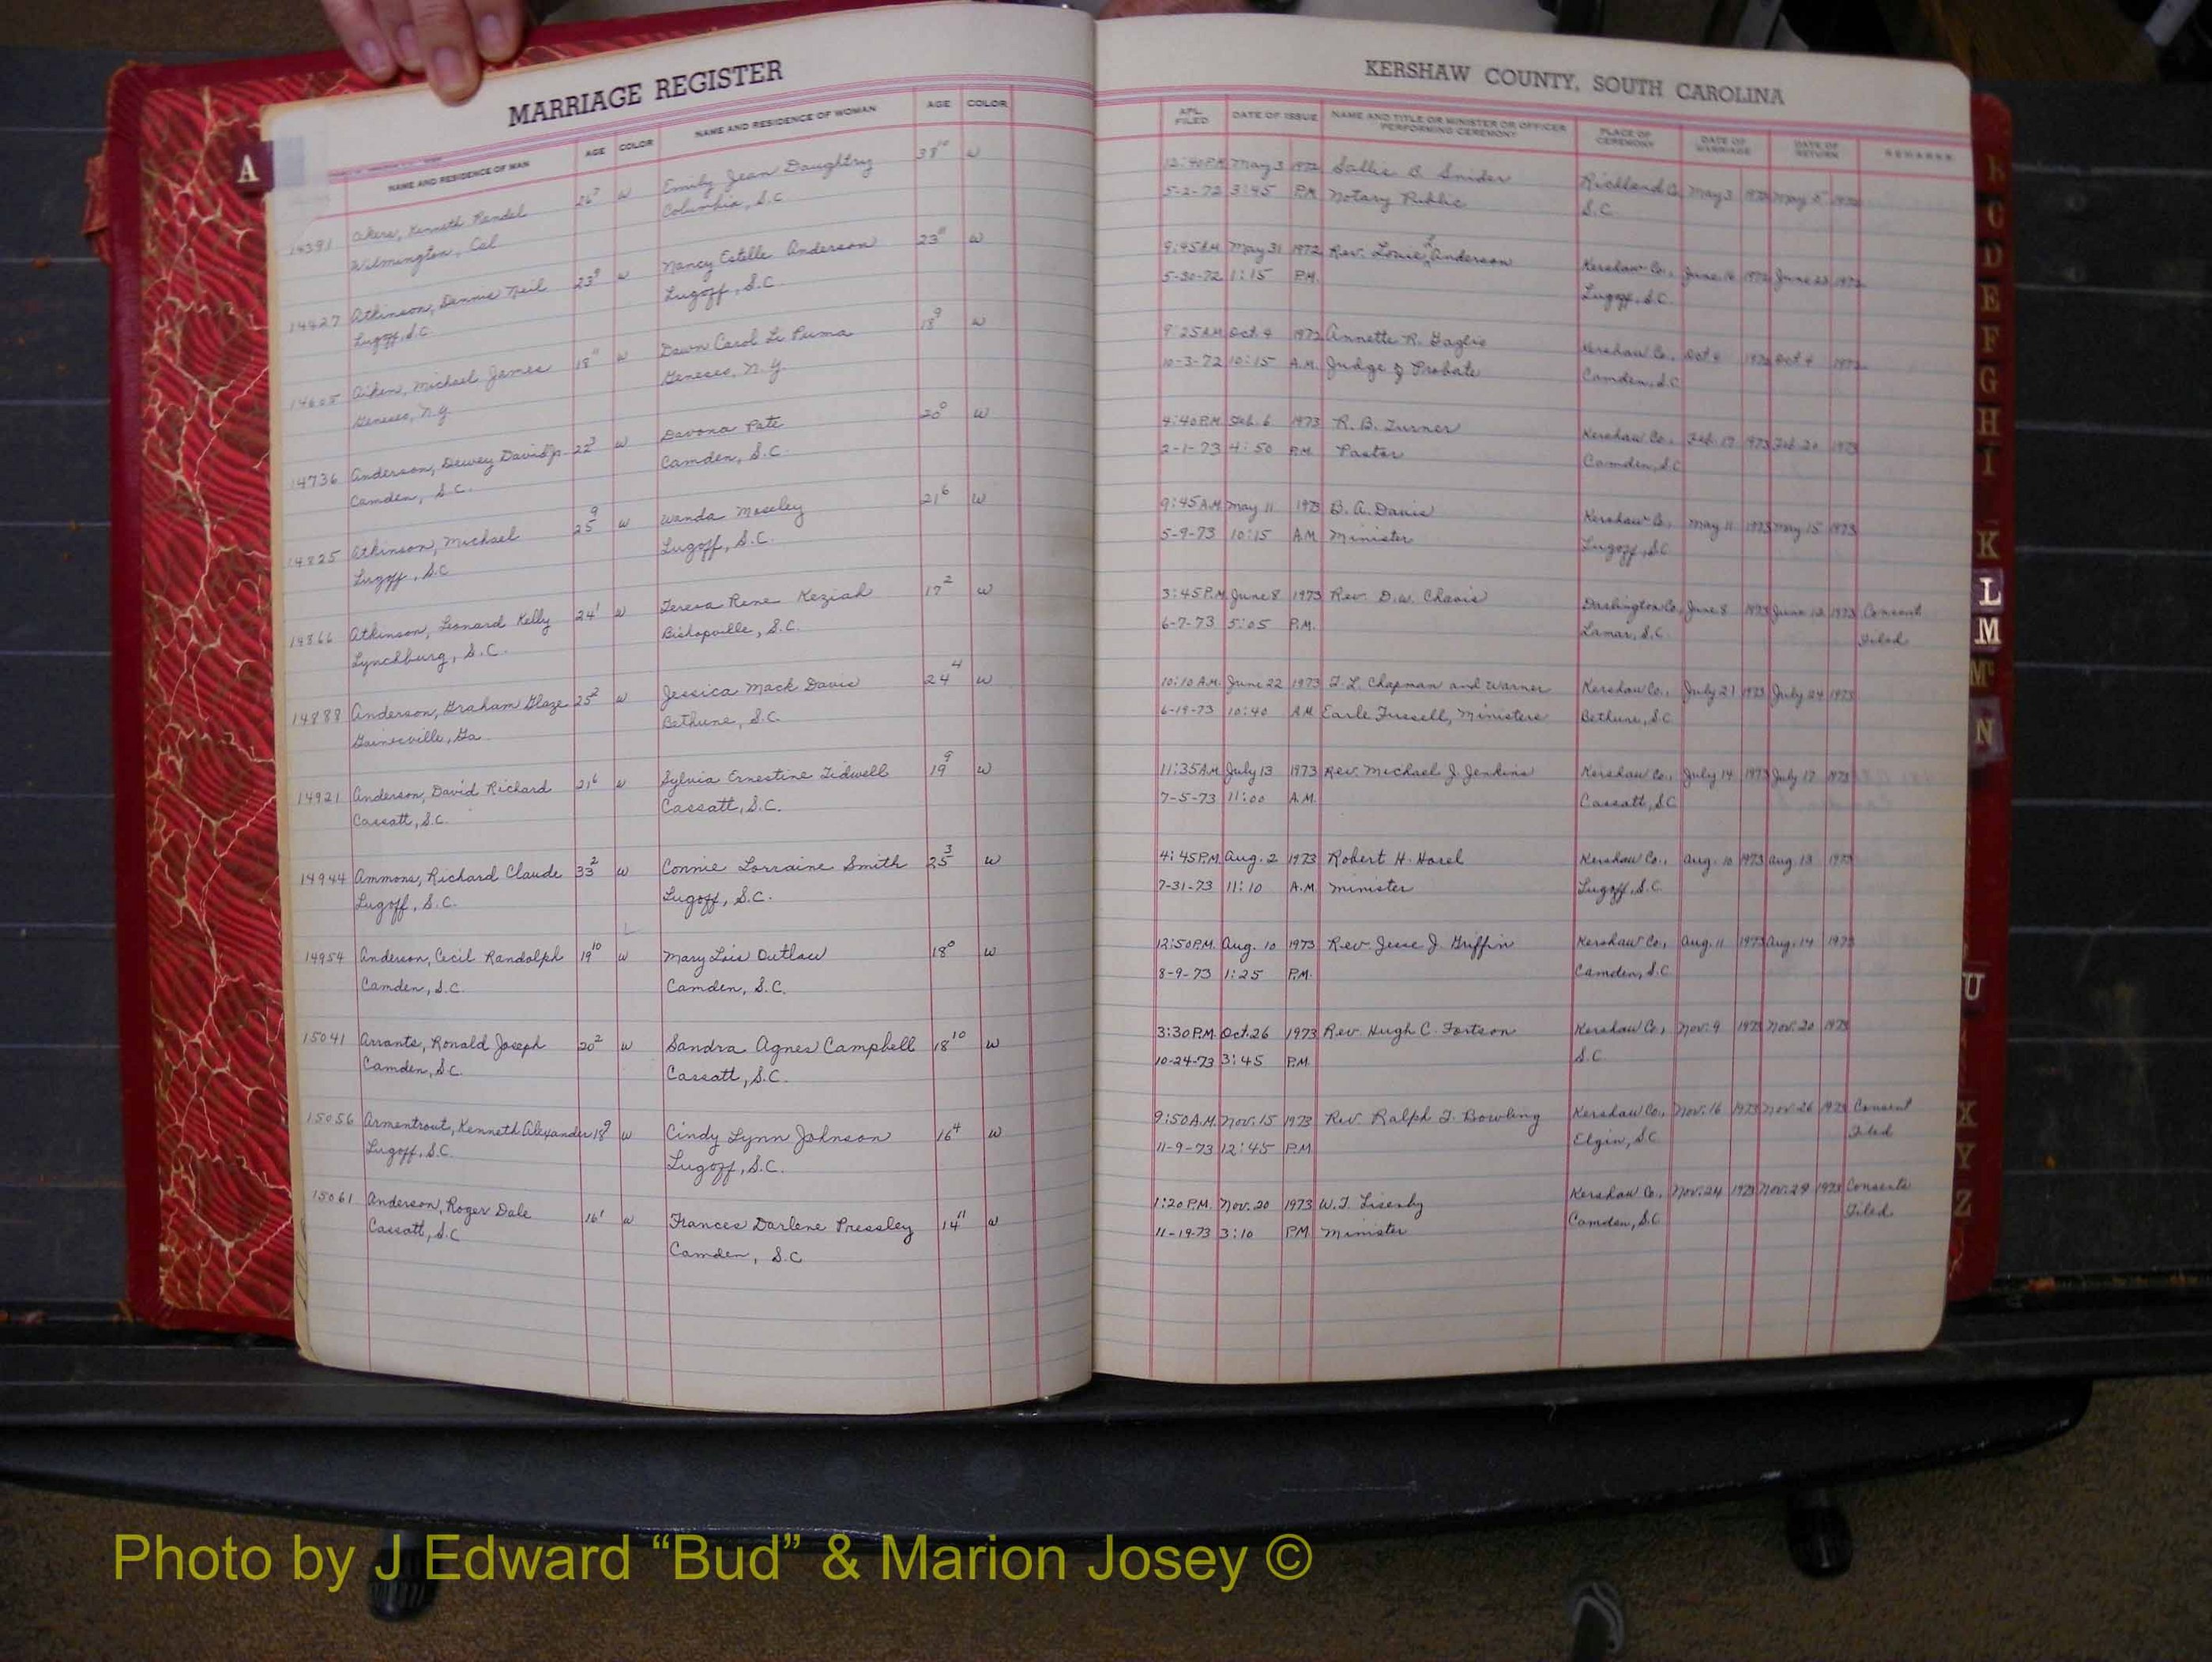 MARRIAGE REGISTER
NAME AND RESIDENCE OF MAN AGE COLOR NAME AND RESIDENCE OF WOMAN AGE COLOR
A
14391 Akers, Kenneth Randal 26⁷ W Emily Jean Daughtry 38¹⁰ W
Wilmington, Cal Columbia, S.C.
14427 Atkinson, Dennis Neil 23⁹ W Nancy Estelle Anderson 23¹¹ W
Lugoff, S.C. Lugoff, S.C.
14605 Aiken, Michael James 18¹¹ W Dawn Carol Le Puma 18⁹ W
Geneseo, N.Y. Geneseo, N.Y.
14736 Anderson, Dewey David Jr. 22³ W Davona Pate 20⁰ W
Camden, S.C. Camden, S.C.
14825 Atkinson, Michael 25⁹ W Wanda Moseley 21⁶ W
Lugoff, S.C. Lugoff, S.C.
14866 Atkinson, Leonard Kelly 24¹ W Teresa Rene Keziah 17² W
Lynchburg, S.C. Bishopville, S.C.
14888 Anderson, Graham Glaze 25² W Jessica Mack Davis 24⁴ W
Gainesville, Ga. Bethune, S.C.
14921 Anderson, David Richard 21⁶ W Sylvia Ernestine Tidwell 19⁹ W
Cassatt, S.C. Cassatt, S.C.
14944 Ammons, Richard Claude 33² W Connie Lorraine Smith 25³ W
Lugoff, S.C. Lugoff, S.C.
14954 Anderson, Cecil Randolph 19¹⁰ W Mary Lois Outlaw 18⁰ W
Camden, S.C. Camden, S.C.
15041 Arrants, Ronald Joseph 20² W Sandra Agnes Campbell 18¹⁰ W
Camden, S.C. Cassatt, S.C.
15056 Armentrout, Kenneth Alexander 18⁹ W Cindy Lynn Johnson 16⁴ W
Lugoff, S.C. Lugoff, S.C.
15061 Anderson, Roger Dale 16¹ W Frances Darlene Pressley 14¹¹ W
Cassatt, S.C. Camden, S.C.
KERSHAW COUNTY, SOUTH CAROLINA
APL. FILED DATE OF ISSUE NAME AND TITLE OR MINISTER OR OFFICER PERFORMING CEREMONY PLACE OF CEREMONY DATE OF MARRIAGE DATE OF RETURN REMARKS
12:40 P.M. May 3 1972 Sallie B. Snider Richland Co. May 3 1972 May 5 1972
5-2-72 3:45 P.M. Notary Public S.C.
9:45 A.M. May 31 1972 Rev. Louie Anderson Kershaw Co., June 16 1972 June 23 1972
5-30-72 1:15 P.M. Lugoff, S.C.
9:25 A.M. Oct. 4 1972 Annette R. Gaglio Kershaw Co., Oct 4 1972 Oct 4 1972
10-3-72 10:15 A.M. Judge of Probate Camden, S.C.
4:40 P.M. Feb. 6 1973 R. B. Turner Kershaw Co., Feb. 17 1973 Feb. 20 1973
2-1-73 4:50 P.M. Pastor Camden, S.C.
9:45 A.M. May 11 1973 B. A. Davis Kershaw Co., May 11 1973 May 15 1973
5-9-73 10:15 A.M. Minister Lugoff, S.C.
3:45 P.M. June 8 1973 Rev. D. W. Chavis Darlington Co., June 8 1973 June 12 1973 Consent
6-7-73 5:05 P.M. Lamar, S.C. Filed
10:10 A.M. June 22 1973 T. L. Chapman and Warner Kershaw Co., July 21 1973 July 24 1973
6-19-73 10:40 A.M. Earle Fussell, Ministers Bethune, S.C.
11:35 A.M. July 13 1973 Rev. Michael J. Jenkins Kershaw Co., July 14 1973 July 17 1973
7-5-73 11:00 A.M. Cassatt, S.C.
4:45 P.M. Aug. 2 1973 Robert H. Kershaw Co., Aug. 10 1973 Aug. 13 1973
7-31-73 11:10 A.M. Minister Lugoff, S.C.
12:50 P.M. Aug. 10 1973 Rev. Jesse J. Griffin Kershaw Co., Aug. 11 1973 Aug. 14 1973
8-9-73 1:25 P.M. Camden, S.C.
3:30 P.M. Oct. 26 1973 Rev. Hugh C. Fortson Kershaw Co., Nov. 9 1973 Nov. 20 1973
10-24-73 3:45 P.M. S.C.
9:50 A.M. Nov. 15 1973 Rev. Ralph T. Bowling Kershaw Co., Nov. 16 1973 Nov. 26 1973 Consent
11-9-73 12:45 P.M. Elgin, S.C. Filed
1:20 P.M. Nov. 20 1973 W. T. Lisenby Kershaw Co., Nov. 24 1973 Nov. 29 1973 Consents
11-19-73 3:10 P.M. Minister Camden, S.C. Filed
C
D
E
F
G
H
I
K
L
M
Mc
N
U
X
Y
Z
Photo by J Edward “Bud” & Marion Josey ©